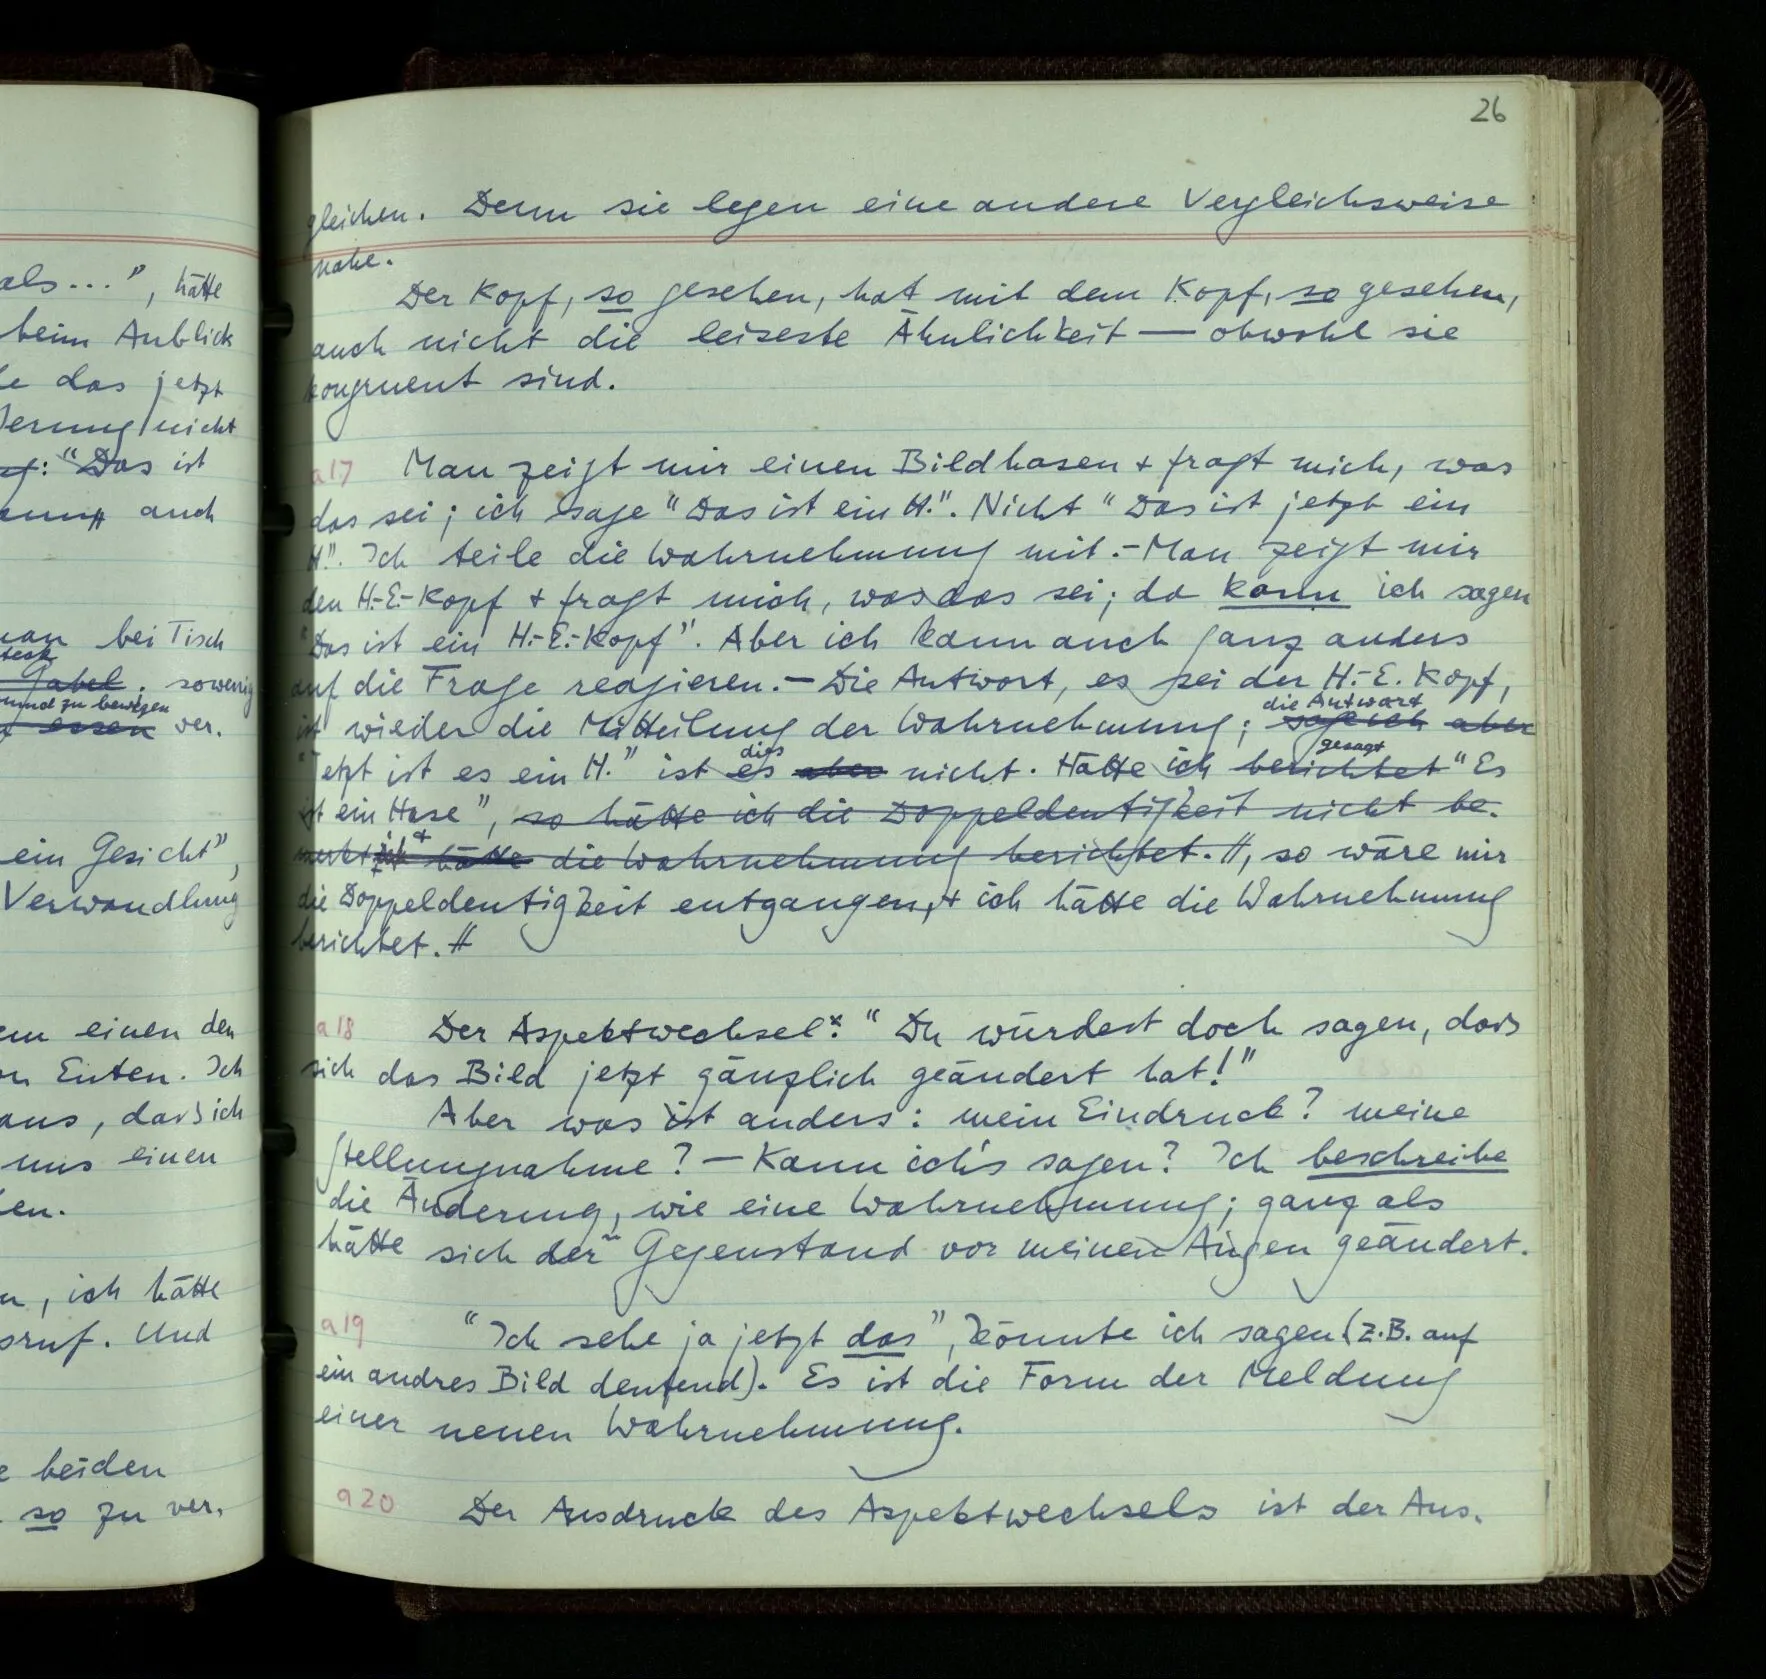 als...", hätte
beim Anblick
das jetzt
nicht
"Das ist
auch
bei Tisch
Gabel. sowenig
und zu bewegen
essen ver-
ein Gesicht",
Verwandlung
einen den
Enten. Ich
aus, dass ich
uns einen
, ich hätte
Und
beiden
so zu ver-
26
gleichen. Denn sie legen eine andere Vergleichsweise
nahe.
Der Kopf, so gesehen, hat mit dem Kopf, so gesehen,
auch nicht die leiseste Ähnlichkeit — obwohl sie
kongruent sind.
a17 Man zeigt mir einen Bildhasen + fragt mich, was
das sei; ich sage "Das ist ein H.". Nicht "Das ist jetzt ein
H". Ich teile die Wahrnehmung mit. – Man zeigt mir
den H.-E.-Kopf + fragt mich, was das sei; da kann ich sagen
"Das ist ein H.-E.-Kopf". Aber ich kann auch ganz anders
auf die Frage reagieren. – Die Antwort, es sei der H.-E. Kopf,
die Antwort
ist wieder die Mitteilung der Wahrnehmung; sage ich aber
dies gesagt
"Jetzt ist es ein H." ist es aber nicht. Hätte ich berichtet "Es
ist ein Hase", so hätte ich die Doppeldeutigkeit nicht be-
merkt + ich hätte die Wahrnehmung berichtet. //, so wäre mir
die Doppeldeutigkeit entgangen, + ich hätte die Wahrnehmung
berichtet. //
a18 Der Aspektwechsel: "Du würdest doch sagen, dass
sich das Bild jetzt gänzlich geändert hat!"
Aber was ist anders: mein Eindruck? meine
Stellungnahme? — Kann ich's sagen? Ich beschreibe
die Änderung, wie eine Wahrnehmung; ganz als
hätte sich der Gegenstand vor meinen Augen geändert.
a19 "Ich sehe ja jetzt das", könnte ich sagen (z.B. auf
ein andres Bild deutend). Es ist die Form der Meldung
einer neuen Wahrnehmung.
a20 Der Ausdruck des Aspektwechsels ist der Aus-